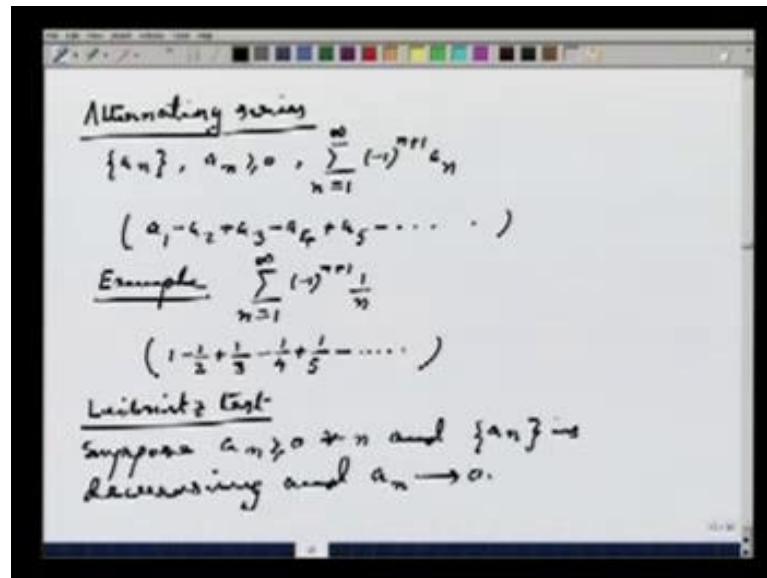 Alternating series
{aₙ}, aₙ ≥ 0, ∑_{n=1}^{∞} (-1)^{n+1} aₙ
( a₁ - a₂ + a₃ - a₄ + a₅ - ..... )
Example ∑_{n=1}^{∞} (-1)^{n+1} 1/n
( 1 - 1/2 + 1/3 - 1/4 + 1/5 - ..... )
Leibnitz test
Suppose aₙ ≥ 0 ∀ n and {aₙ} is
decreasing and aₙ → 0.